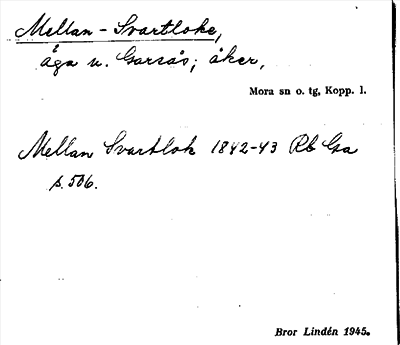 Mellan-Svartloke,
äga u. Garsås; åker,
Mora sn o. tg, Kopp. l.
Mellan Svartlok 1842-43 Rb Gsa
s. 506.
Bror Lindén 1945.